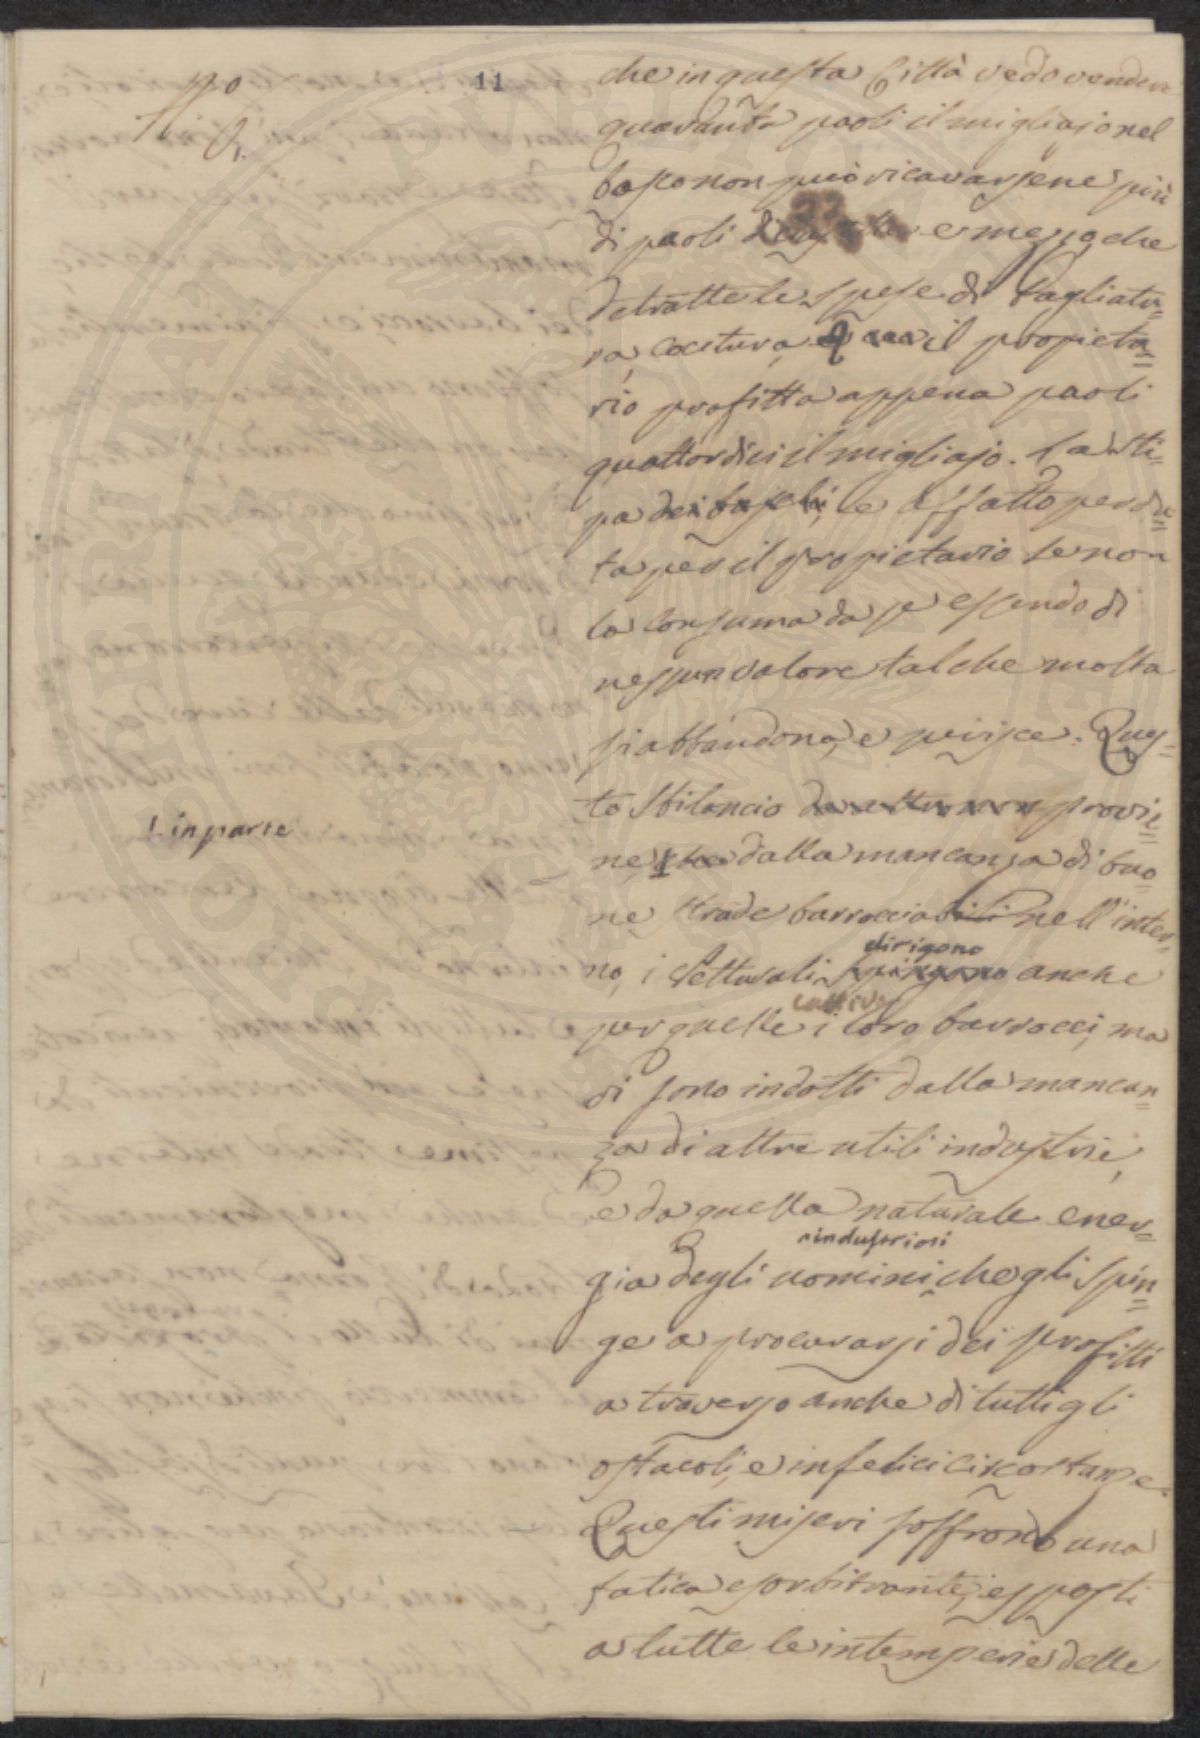 11
che in questa Città vedo vendere
quaranta paoli il migliajo nel
bosco non può ricavarsene più
di paoli 22 e mezzo che
detratte le spese di tagliatu=
ra, cocitura, il propieta=
rio profitta appena paoli
quattordici il migliajo. La sti=
pa dei boschi, e affatto perdu=
ta per il propietario se non
la consuma da se essendo di
nessun valore talche molta
si abbandona, e perisce. Ques=
to sbilancio provie=
! in parte
ne dalla mancanza di buo=
ne strade barrocciabili nell'inter=
dirigono
no, i vetturali spingono anche
cattive
per quelle i loro barrocci, ma
di sono indotti dalla mancan=
za di altre utili industrie,
e da quella naturale ener=
industriosi
gia degli uomini che gli spin=
ge a procurarsi dei profitti
a traverso anche di tutti gli
ostacoli, e infelici circostanze.
Questi miseri soffrono una
fatica esorbitante, esposti
a tutte le intemperie delle